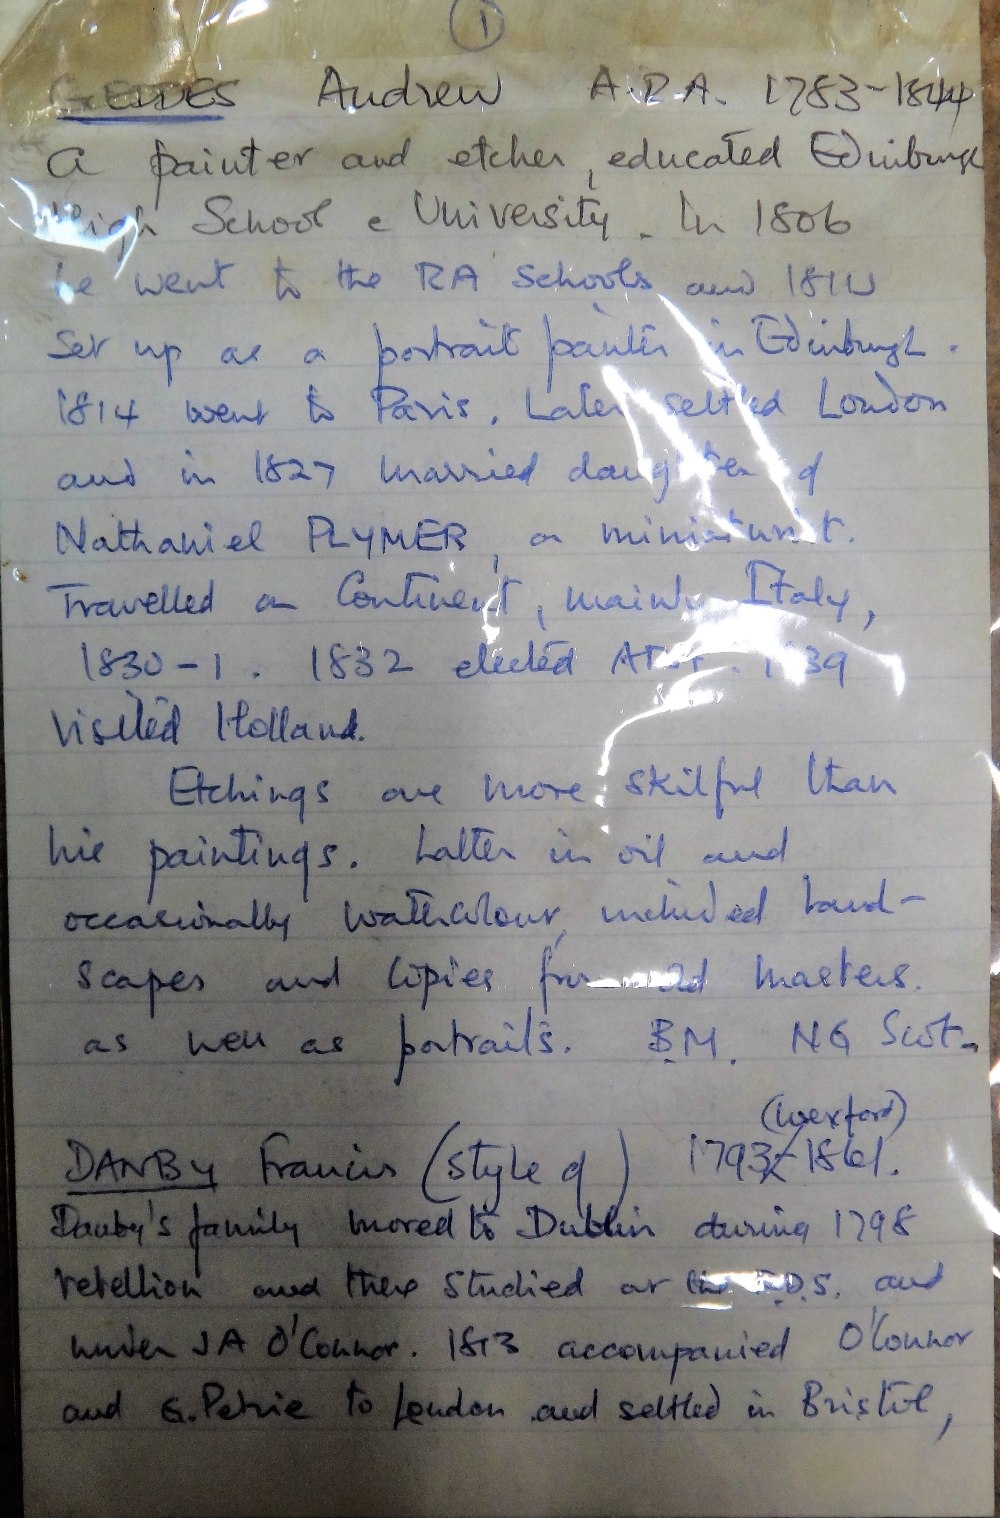 1
GEDDES Andrew A.R.A. 1783-1844
a painter and etcher, educated Edinburgh
High School & University. In 1806
he went to the RA Schools and 1810
set up as a portrait painter in Edinburgh.
1814 went to Paris. Later settled London
and in 1827 married daughter of
Nathaniel PLYMER, a miniaturist.
Travelled on Continent, mainly Italy,
1830-1. 1832 elected ARA. 1839
visited Holland.
Etchings are more skilful than
his paintings. Latter in oil and
occasionally watercolour, included land-
scapes and copies from old masters.
as well as portraits. B.M. NG Scot.
(Wexford)
DANBY Francis (style of) 1793-1861.
Danby's family moved to Dublin during 1798
rebellion and there studied at the R.D.S. and
under JA O'Connor. 1813 accompanied O'Connor
and G. Petrie to London and settled in Bristol,